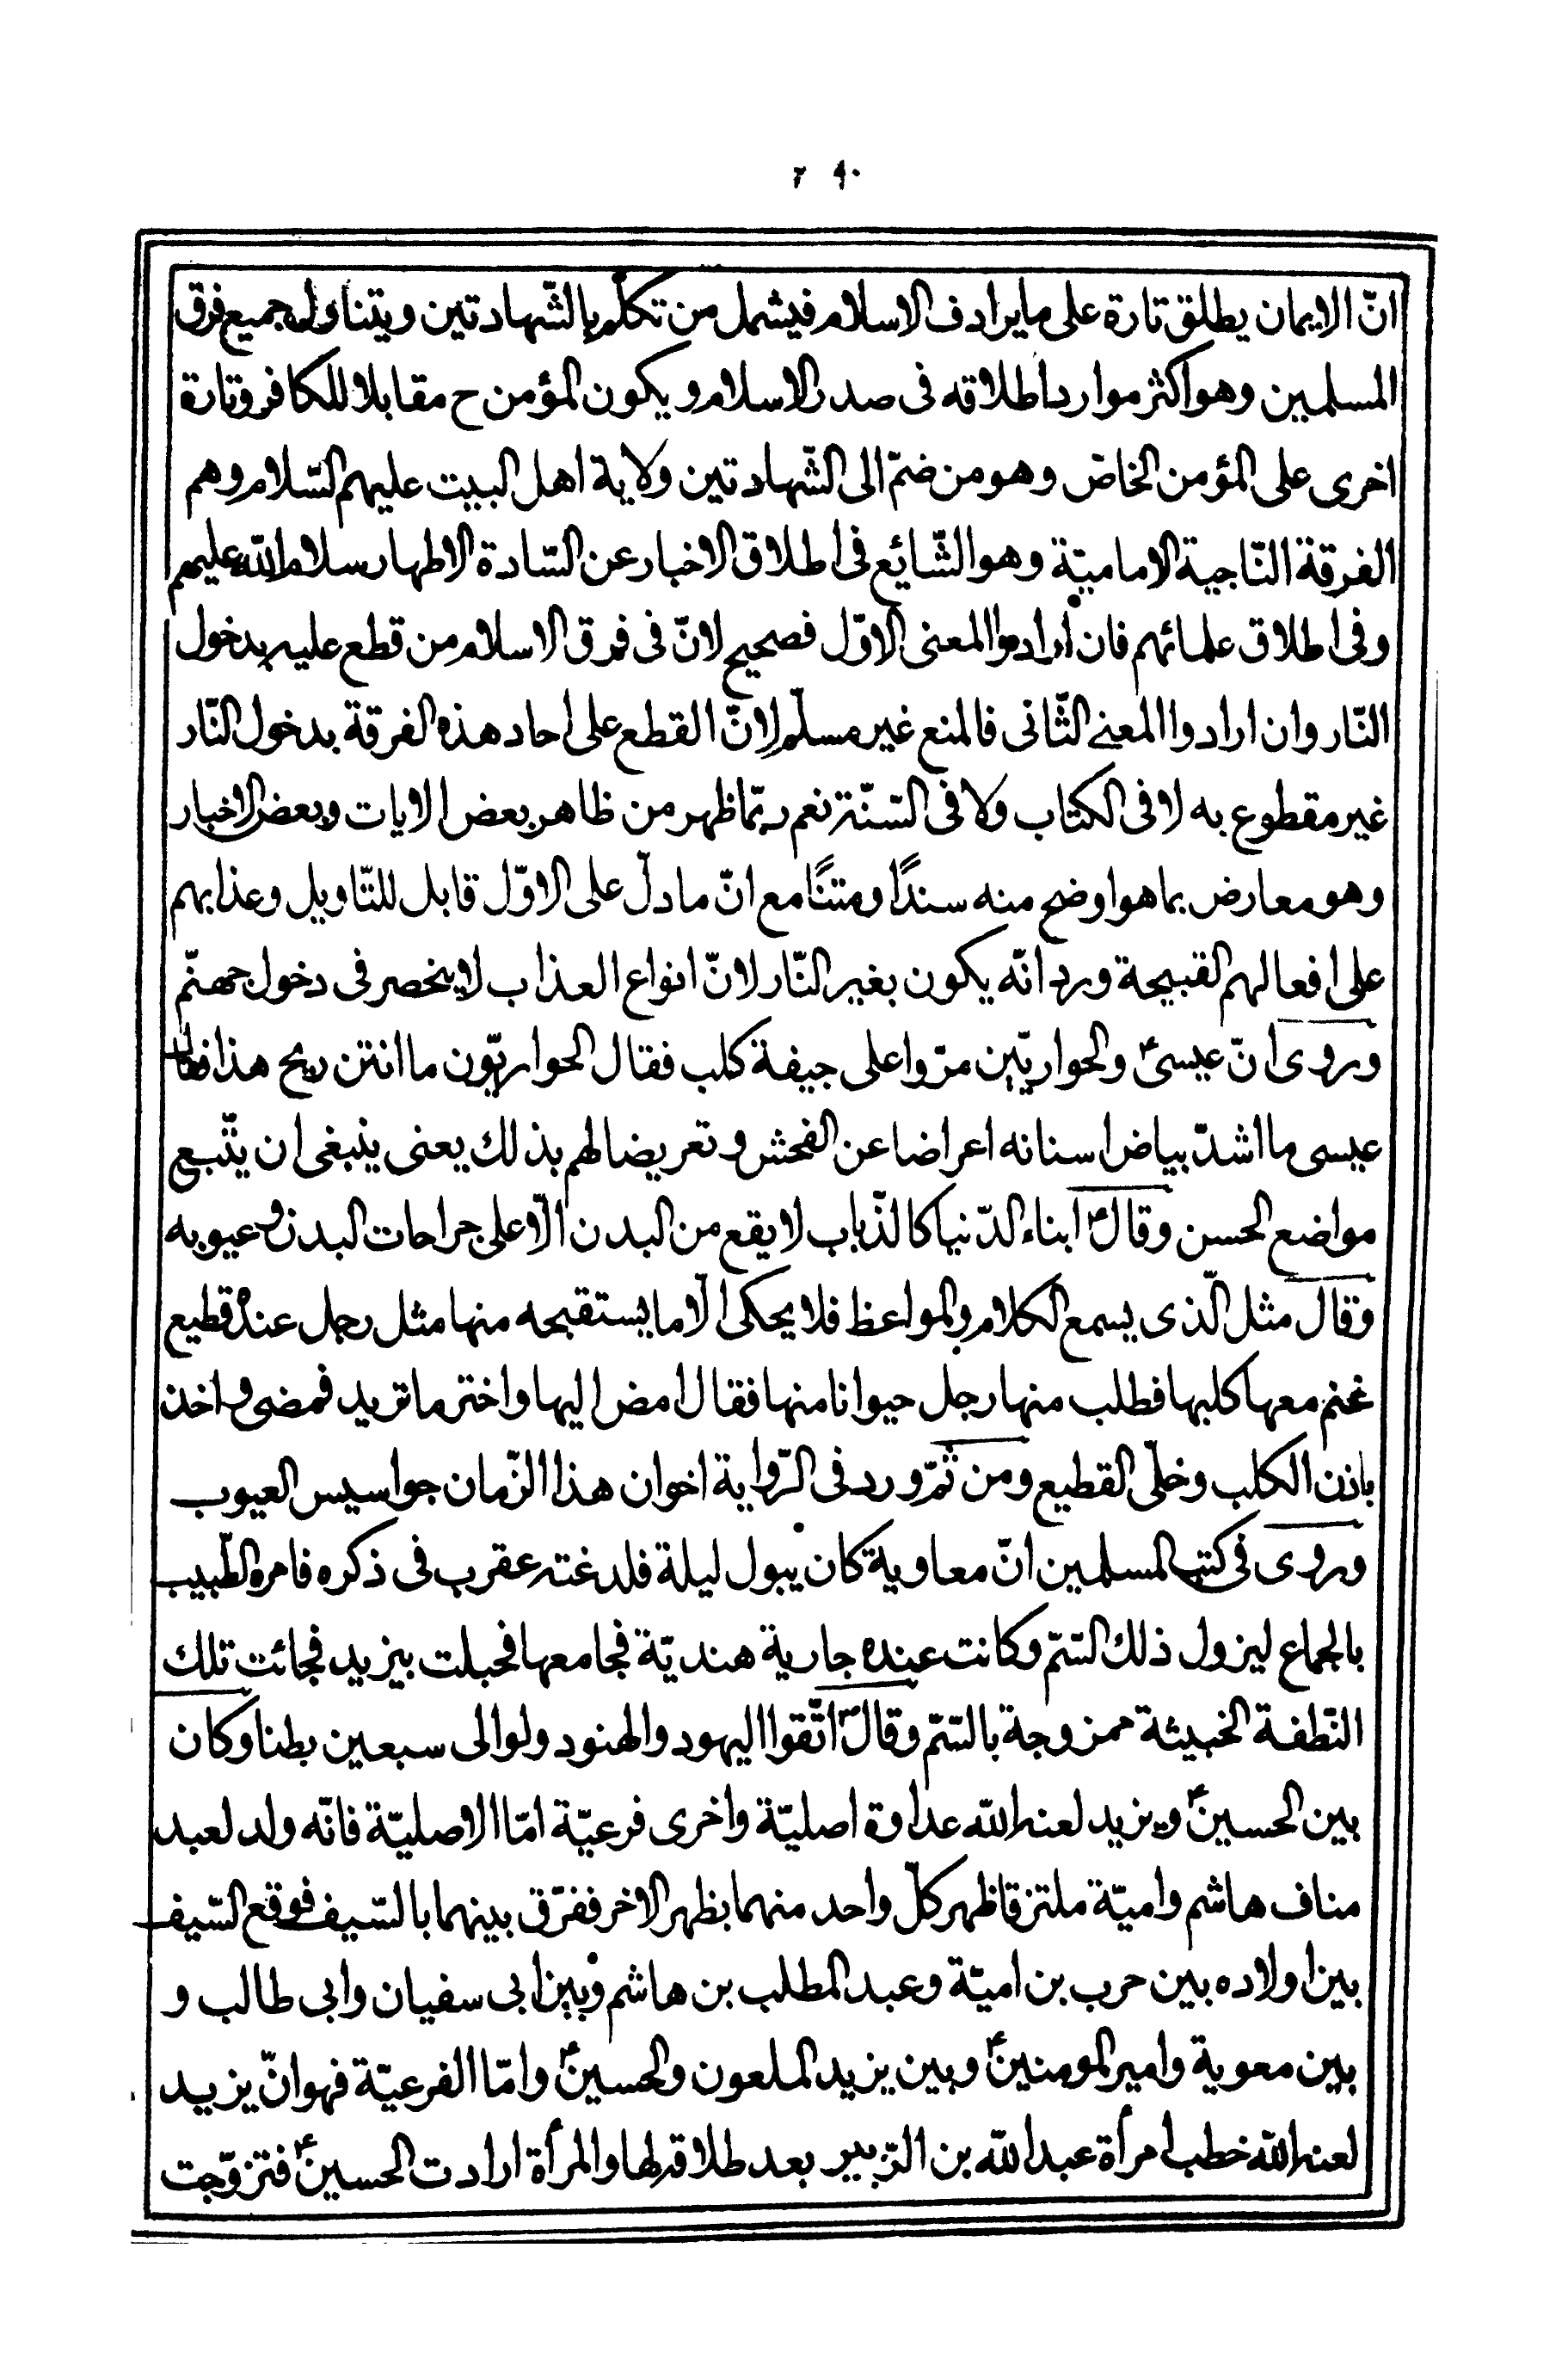 ٢٩٠
انّ الايمان يطلق تارة على ما يرادف الاسلام فيشمل من تكلّم بالشّهادتين ويتناول جميع فرق
المسلمين وهو اكثر موارد اطلاقه فى صدر الاسلام و يكون المؤمن ح مقابلا للكافر وتارة
اخرى على المؤمن الخاصّ وهو من ضمّ الى الشّهادتين ولاية اهل البيت عليهم السّلام وهم
الفرقة النّاجية الاماميّة وهو الشّايع فى اطلاق الاخبار عن السّادة الاطهار سلام الله عليهم
وفى اطلاق علمائهم فان أرادوا المعنى الاوّل فصحيح لانّ فى فرق الاسلام من قطع عليه بدخول
النّار وان ارادوا المعنى الثّانى فالمنع غير مسلّم لانّ القطع على احاد هذه الفرقة بدخول النّار
غير مقطوع به لا فى الكتاب ولا فى السّنّة نعم ربّما ظهر من ظاهر بعض الايات وبعض الاخبار
وهو معارض بما هو اوضح منه سندًا ومتنًا مع انّ ما دلّ على الاوّل قابل للتّاويل وعذابهم
على افعالهم القبيحة ورد انّه يكون بغير النّار لانّ انواع العذاب لا ينحصر فى دخول جهنّم
وروى انّ عيسىؑ والحواريّين مرّوا على جيفة كلب فقال الحواريّون ما انتن ريح هذا فقال
عيسى ما اشدّ بياض اسنانه اعراضا عن الفحش و تعريضا لهم بذلك يعنى ينبغى ان يتّبع
مواضع الحسن وقالؑ ابناء الدّنيا كالذّباب لا يقع من البدن الّا على جراحات البدن وعيوبه
وقال مثل الّذى يسمع الكلام والمواعظ فلا يحكى الّا ما يستقبحه منها مثل رجل عنده قطيع
غنم معها كلبها فطلب منها رجل حيوانا منها فقال امض اليها واختر ما تريد فمضى واخذ
باذن الكلب وخلّى القطيع ومن ثمّ ورد فى الرّواية اخوان هذا الزّمان جواسيس العيوب
وروى فى كتب المسلمين انّ معاوية كان يبول ليلة فلدغته عقرب فى ذكره فامره الطّبيب
بالجماع ليزول ذلك السّمّ وكانت عنده جارية هنديّة فجامعها فحبلت بيزيد فجائت تلك
النّطفة الخبيثة ممزوجة بالسّمّ وقالؑ اتّقوا اليهود والهنود ولو الى سبعين بطنا وكان
بين الحسينؑ ويزيد لعنه الله عداوة اصليّة واخرى فرعيّة امّا الاصليّة فانّه ولد لعبد
مناف هاشم واميّة ملتزقا ظهر كلّ واحد منهما بظهر الاخر ففرّق بينهما بالسّيف فوقع السّيف
بين اولاده بين حرب بن اميّة وعبد المطلب بن هاشم وبين ابى سفيان وابى طالب و
بين معوية وامير المومنينؑ وبين يزيد الملعون والحسينؑ وامّا الفرعيّة فهو انّ يزيد
لعنه الله خطب امرأة عبد الله بن الزّبير بعد طلاقه لها والمرأة ارادت الحسينؑ فتزوّجت